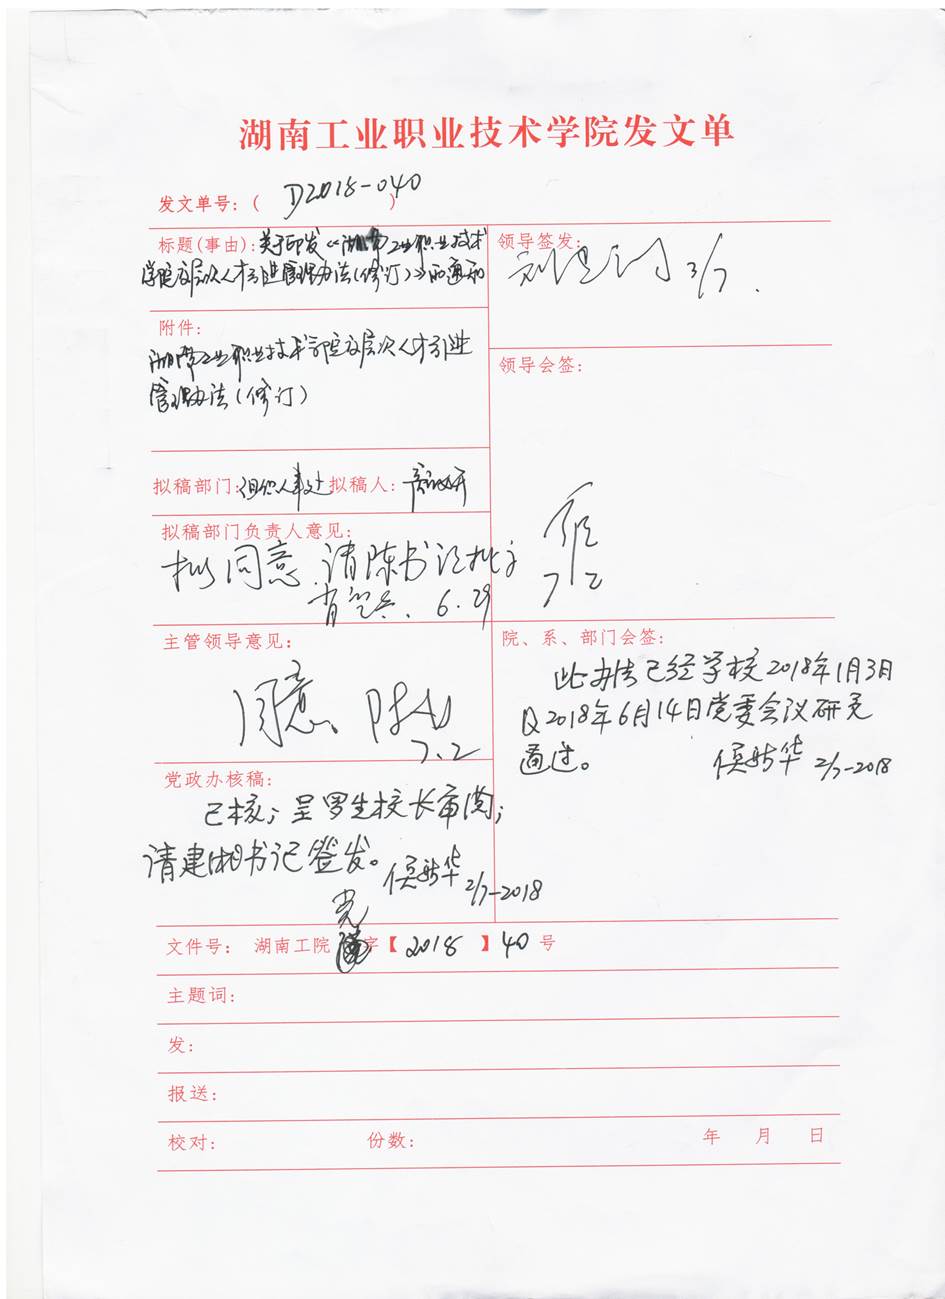 湖南工业职业技术学院发文单
发文单号:( D2018-040 )
标题(事由):关于印发《湖南工业职业技术
学院高层次人才引进管理办法(修订)》的通知
附件:
湖南工业职业技术学院高层次人才引进
管理办法(修订)
拟稿部门:组织人事处 拟稿人:
拟稿部门负责人意见:
拟同意.请陈书记批示
6.29
主管领导意见:
同意。
7.2
党政办核稿:
已核;呈罗生校长审阅;
请建湘书记签发。
侯新华 2/7-2018
领导签发:
3/7.
领导会签:
7/2
院、系、部门会签:
此办法已经学校2018年1月3日
及2018年6月14日党委会议研究
通过。
侯新华 2/7-2018
党
文件号: 湖南工院 字【2018】40号
主题词:
发:
报送:
校对: 份数: 年 月 日